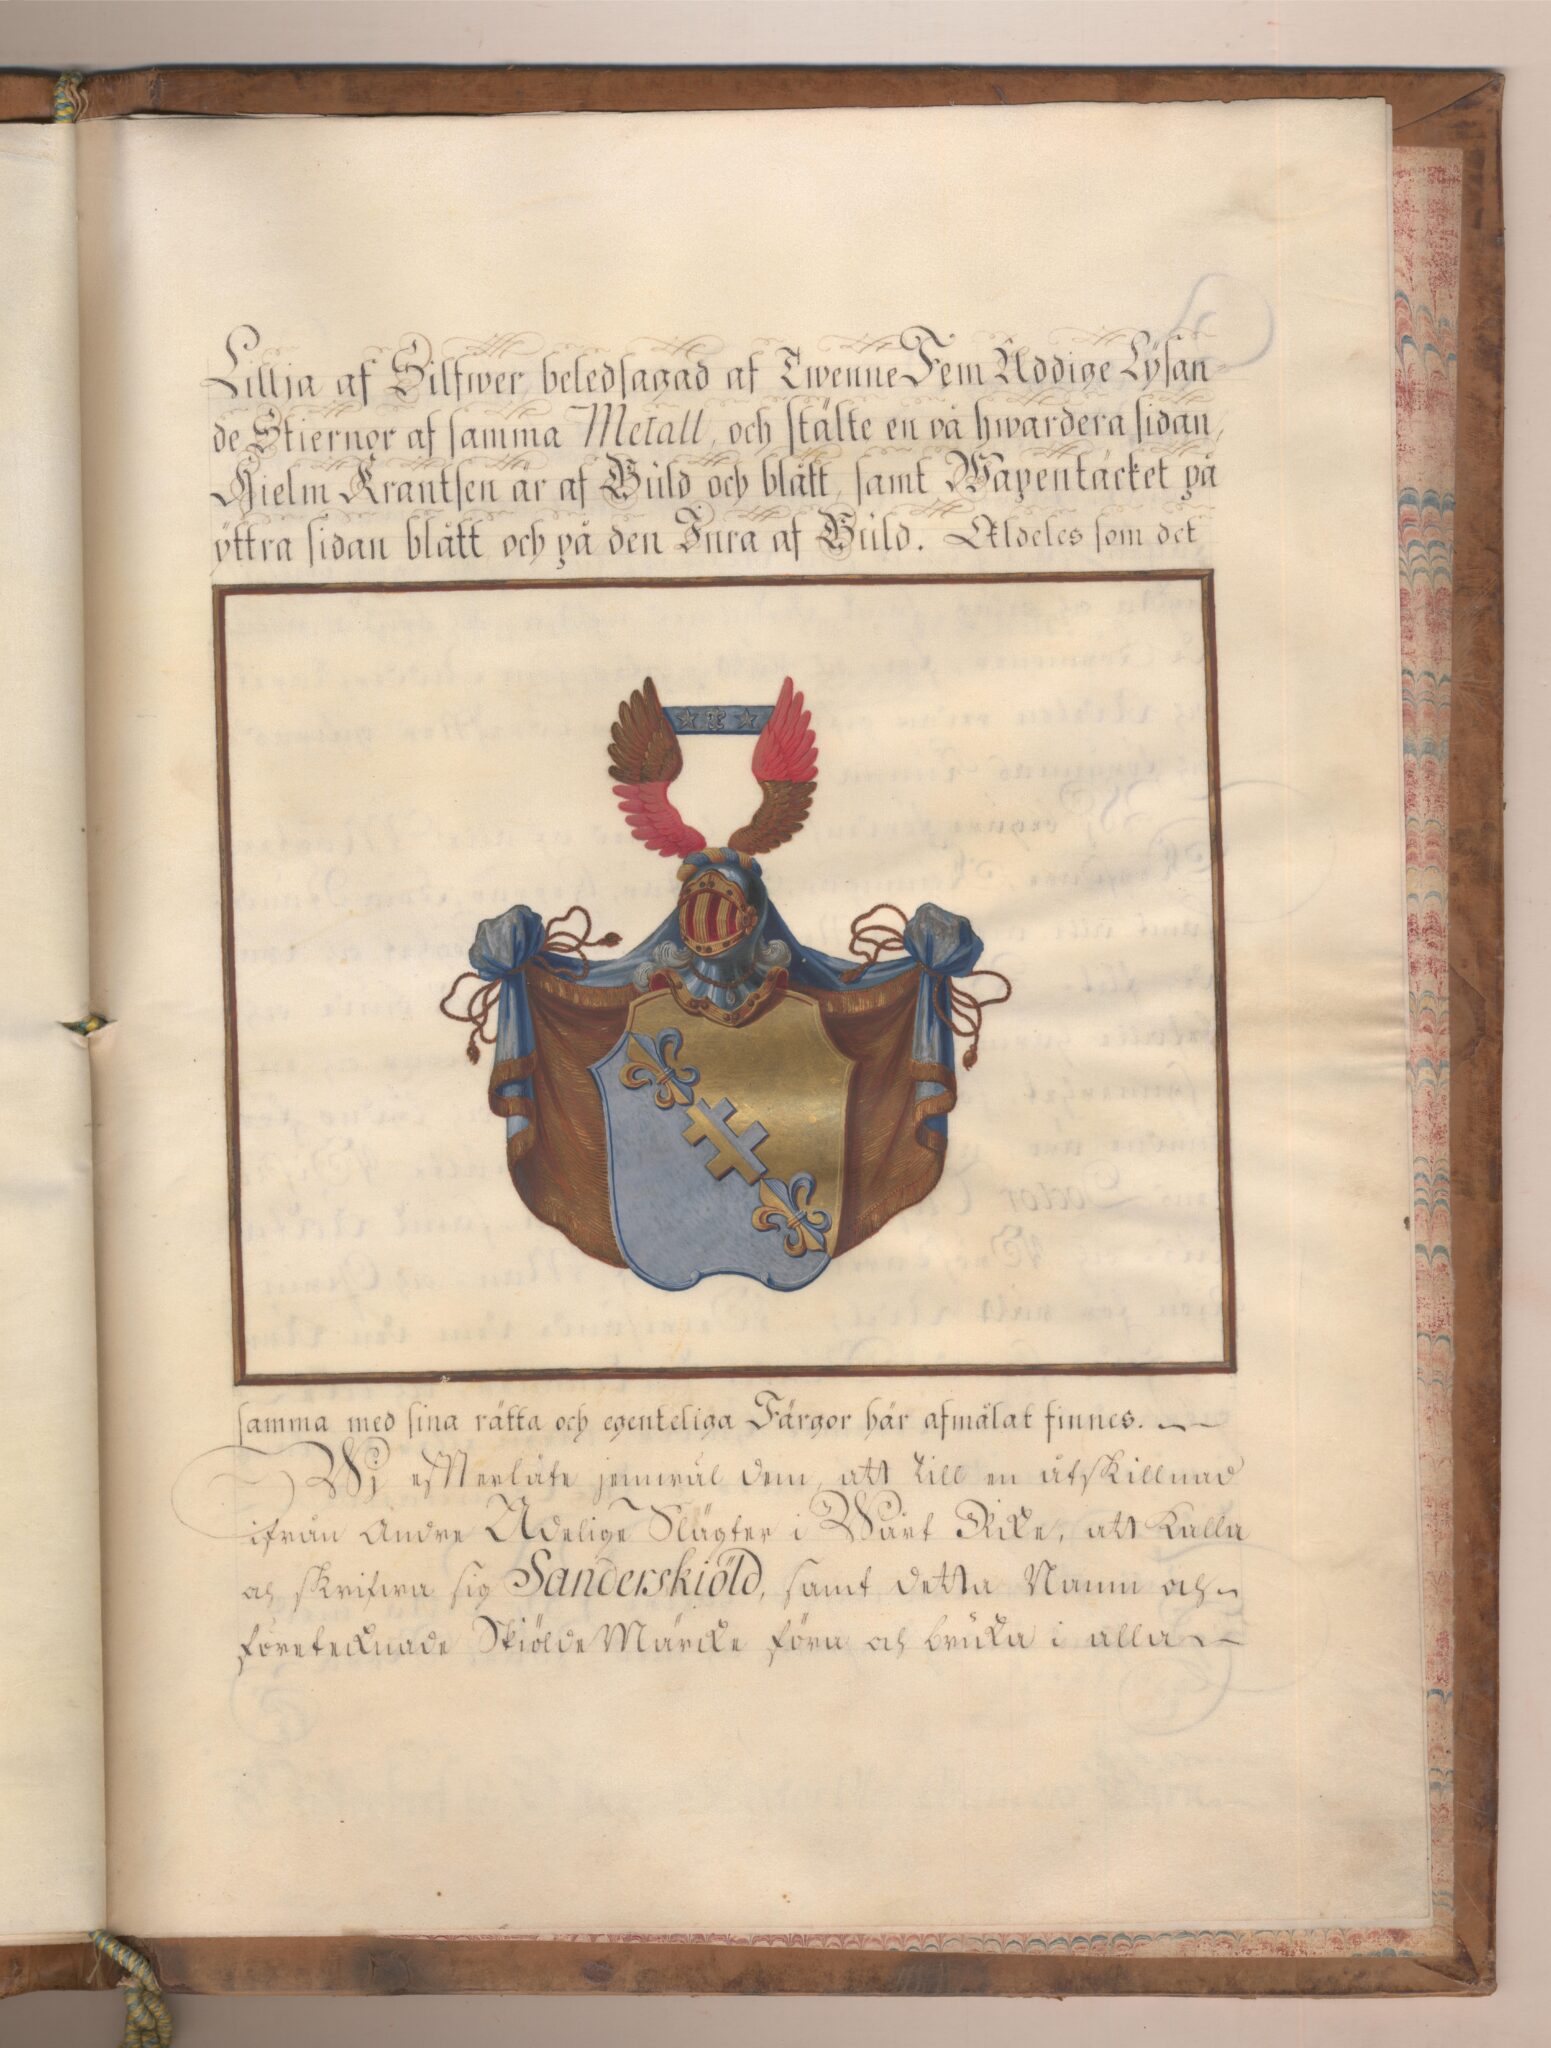 Lillja af Silfwer beledsagad af Twenne Fem Uddige Lÿsan-
de Stiernor af samma Metall, och stälte en på hwardera sidan,
Hielm Krantsen är af Gŭld och blått, samt Wapentäcket på
ÿttra sidan blått och på den Inra af Gŭld. Aldeles som det
samma med sina rätta och egenteliga Färgor här afmålat finnes.
Wj efterlåte jemwäl dem, att till en åtskillnad
ifrån Andre Adelige Slägter i Wårt Rike, att kalla
och skrifwa sig Sanderskiöld, samt detta Namn och
företecknade Skiölde Märcke föra och brŭka i alla